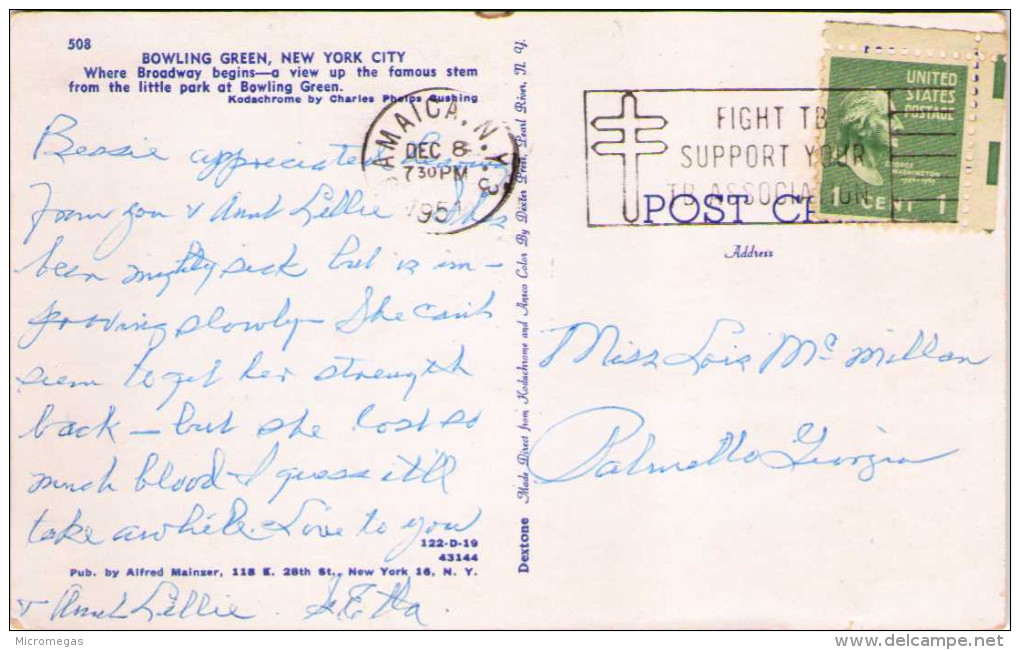 508
BOWLING GREEN, NEW YORK CITY
Where Broadway begins—a view up the famous stem
from the little park at Bowling Green.
Kodachrome by Charles Phelps Cushing
Bessie appreciated hearing
from you & Aunt Lillie. She's
been mighty sick but is im-
proving slowly. She can't
seem to get her strength
back — but she lost so
much blood I guess it'll
take awhile. Love to you
122-D-19
43144
Pub. by Alfred Mainzer, 118 E. 28th St., New York 16, N. Y.
& Aunt Lillie.
Dextone Made Direct from Kodachrome and Ansco Color By Dexter Press, Pearl River, N. Y.
JAMAICA, N.Y.
DEC 8
7 30 PM
FIGHT TB
SUPPORT YOUR
TB ASSOCIATION
UNITED
STATES
POSTAGE
GEORGE
WASHINGTON
1 CENT 1
POST
Address
Miss Lois McMillan
Palmetto Georgia
Micromegas
delcampe.net